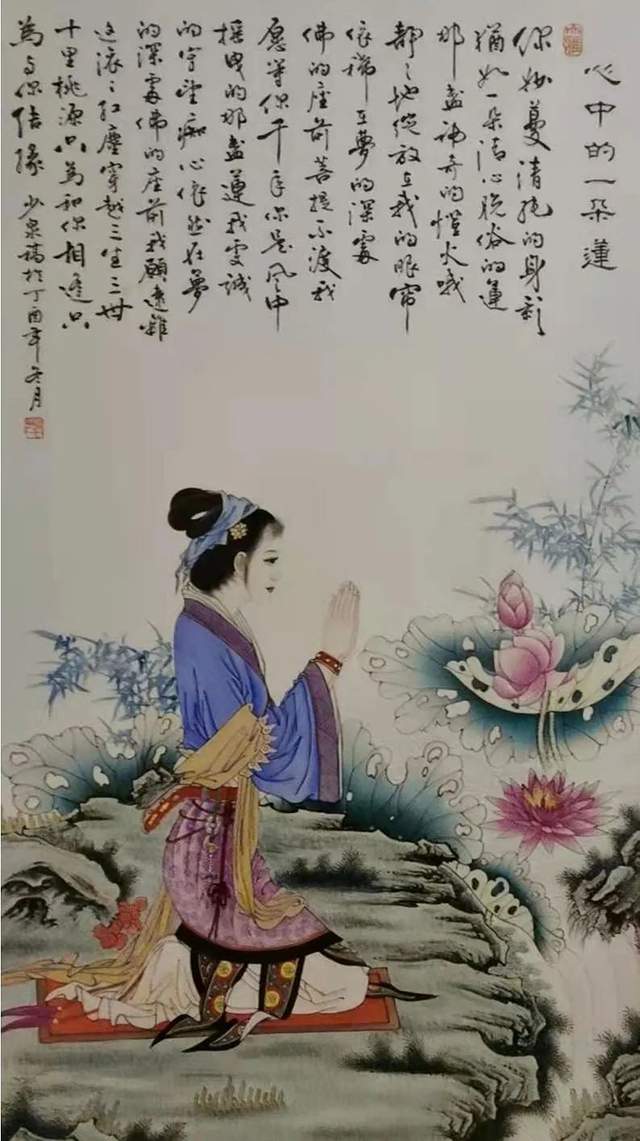 心中的一朵蓮
你妙蔓清純的身影
猶如一朵清心脫俗的蓮
那盞神奇的燈火哦
靜〻地綻放在我的眼帘
依稀在夢的深處
佛的座前菩提不渡我
愿等你千年你是風中
搖曳的那盞蓮我虔誠
的守望痴心依然在夢
的深處佛的座前我願遠離
這滾〻紅塵穿越三生三世
十里桃源只為和你相逢只
為与你结缘 少泉稿於丁酉年冬月